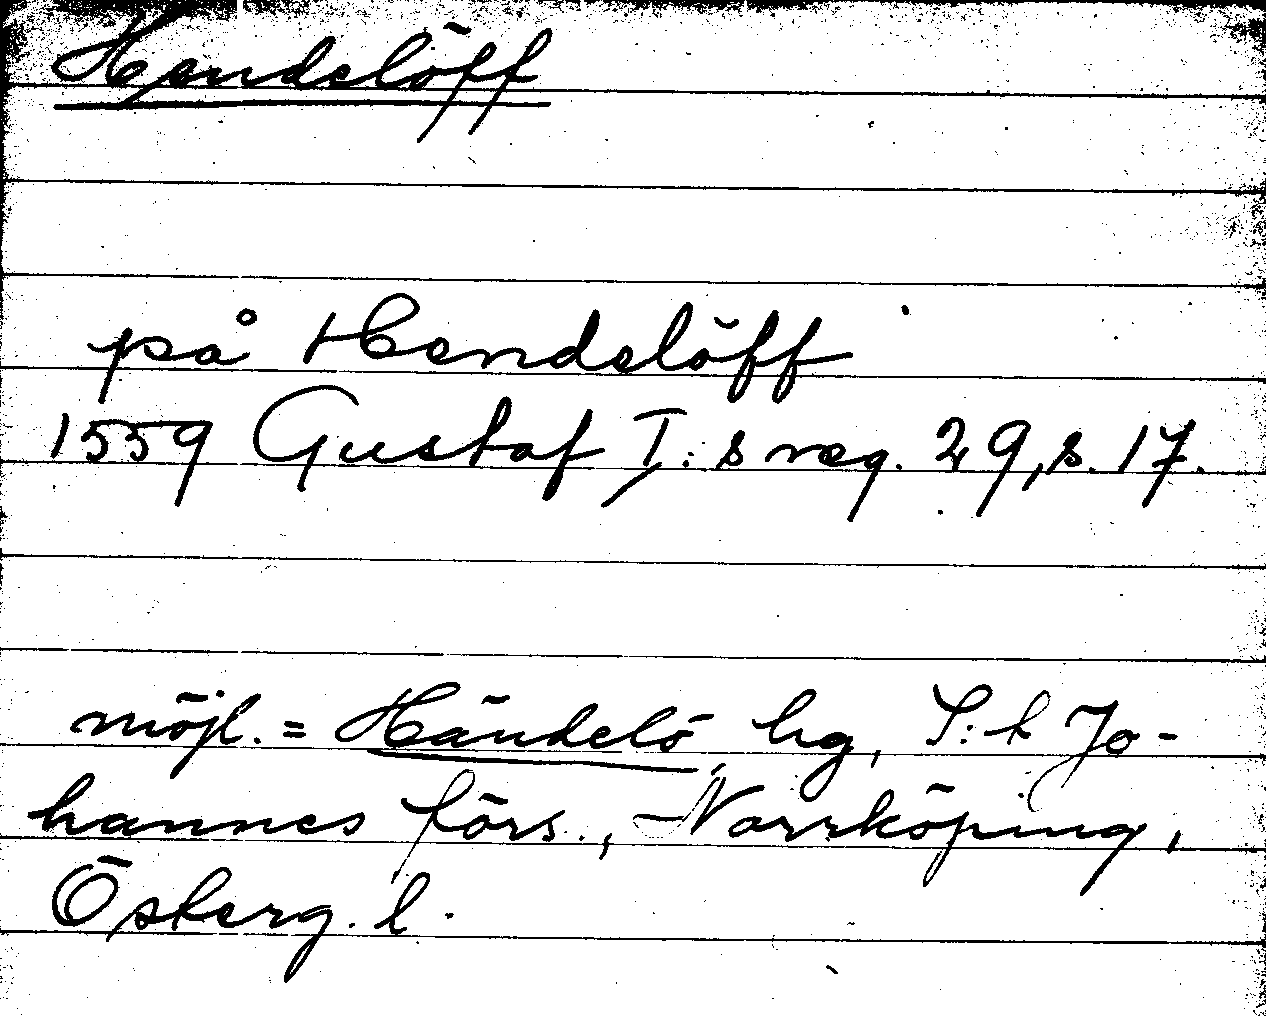 Hendelöff
på Hendelöff
1559 Gustaf I:s reg. 29, s. 17.
möjl. = Händelö hg, S:t Jo-
hannes förs., Norrköping,
Österg. l.